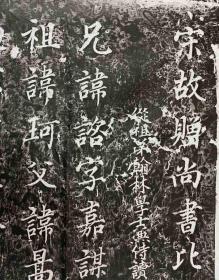 宋故贈尚書比
從祖 翰林學士兼侍讀
兄諱諮字嘉謀
祖諱珂父諱